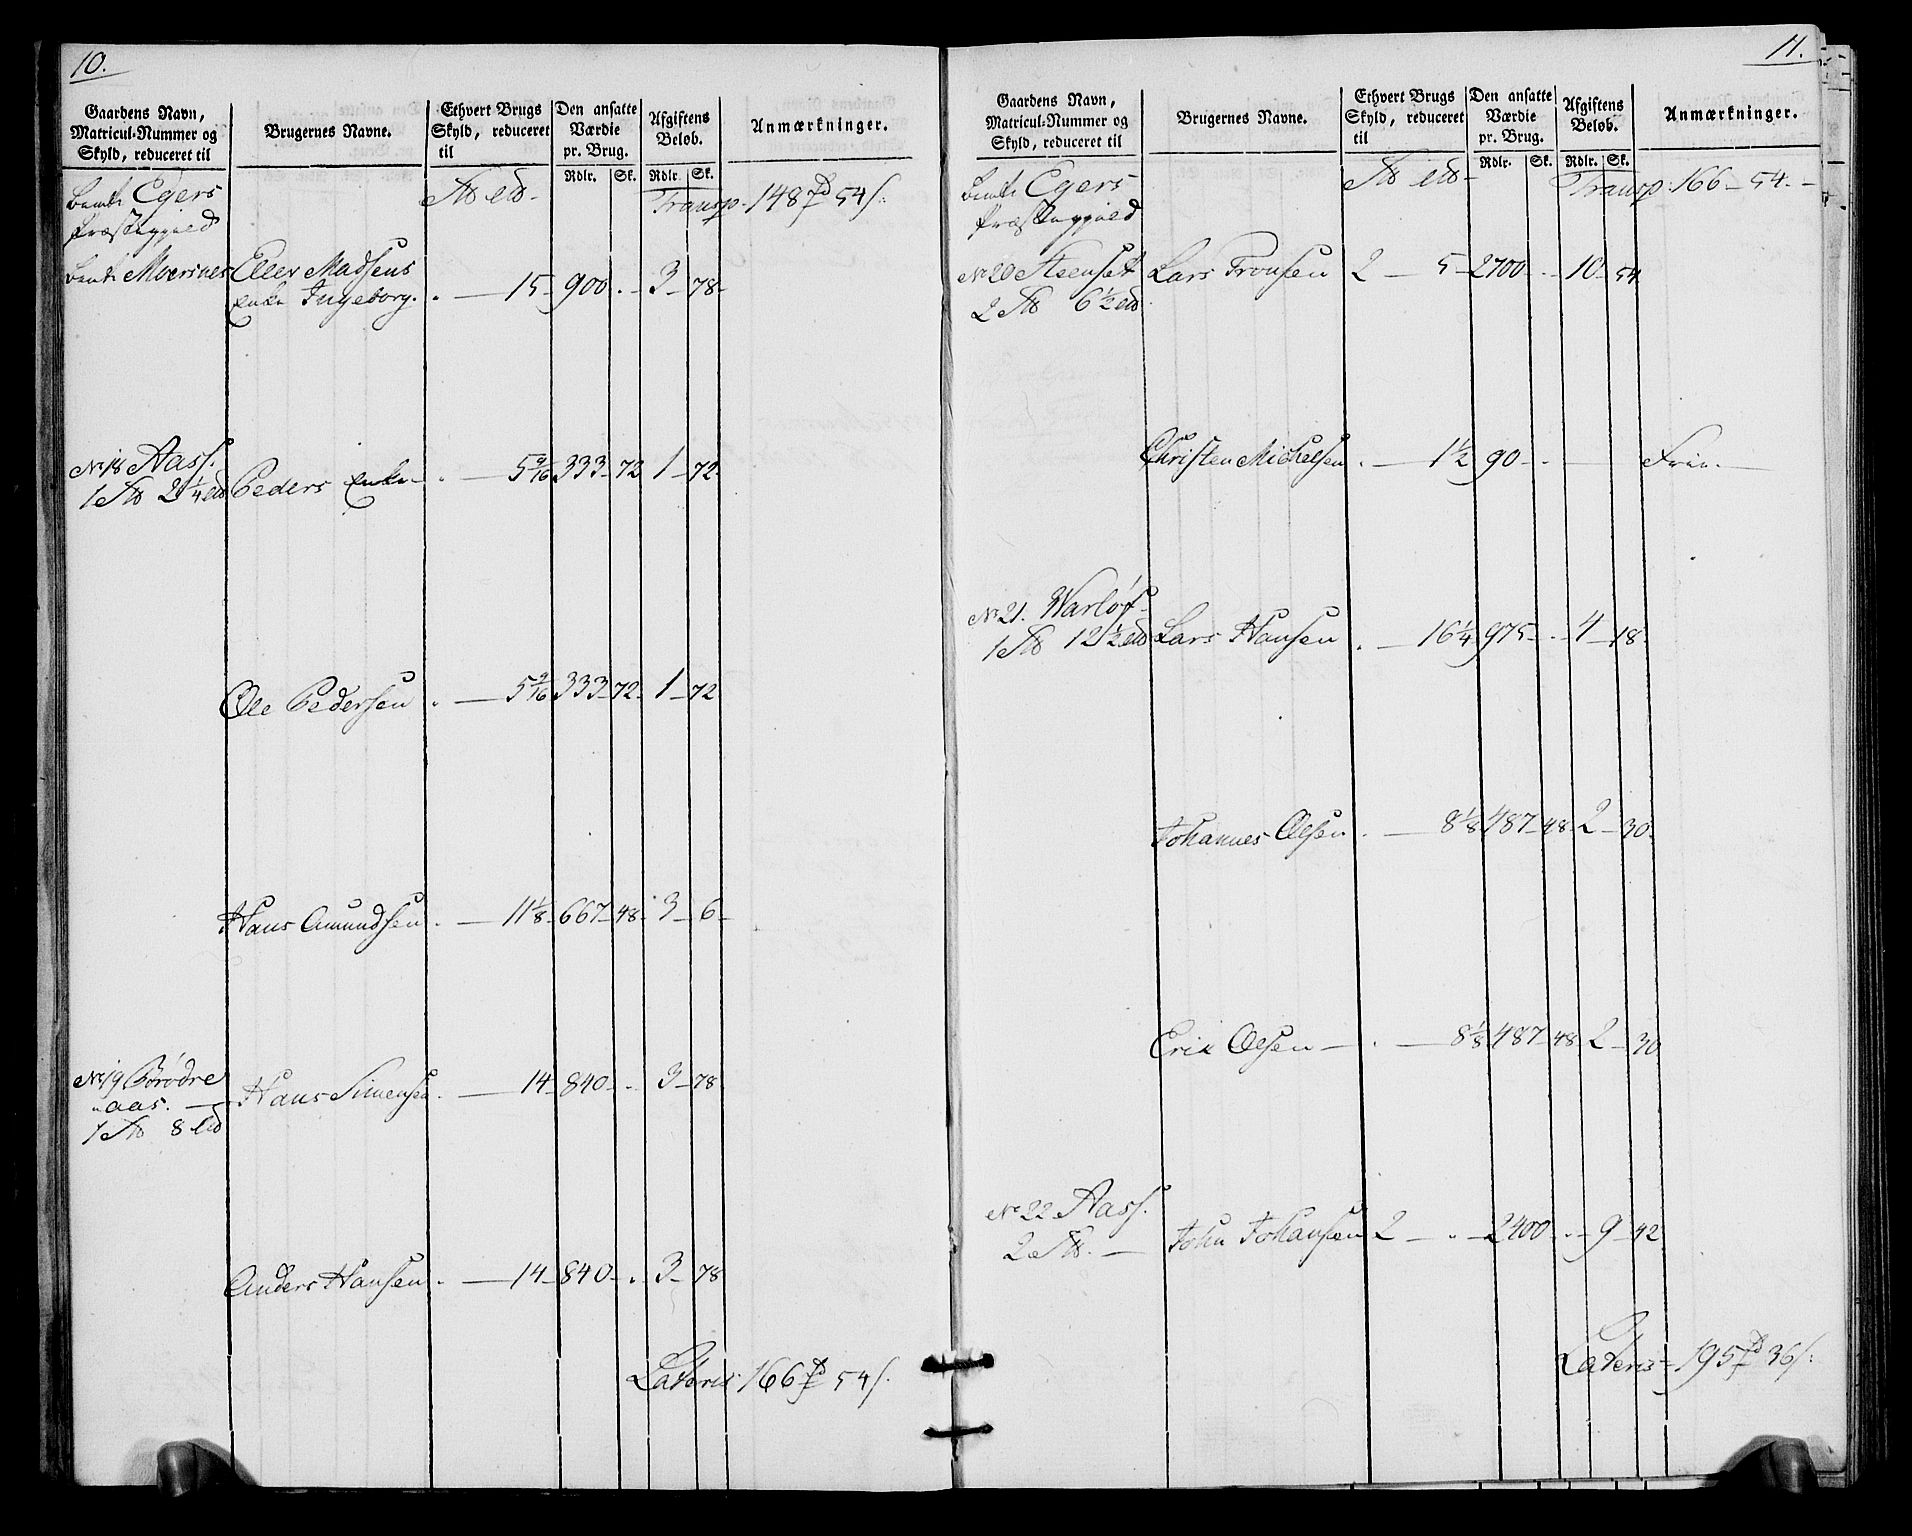 10.
Gaardens Navn,
Matricul-Nummer og
Skyld, reduceret til
Brugernes Navne.
Ethvert Brugs
Skyld, reduceret
til
Den ansatte
Værdie
pr. Brug.
Rdlr. Sk.
Afgiftens
Beløb.
Rdlr. Sk.
Anmærkninger.
Egers
Transp. 148 54 s.
Eller Madsens
Enke Ingeborg. . — 15 — 900 . — 3 — 78 —
No 18 Aass.
1 2 1/4 Peders Enke — . — 5 9/16 333 — 72 1 — 72.
Ole Pedersen . — 5 9/16 333 — 72 — 1 — 72
Hans Amundsen . — 11 1/8 — 667 — 48 . 3 — 6 —
No 19
aas. — Hans Simensen . — 14 — 840 — . — 3 — 78
1 8
Anders Hansen . — 14 — 840 — . — 3 — 78
Lateris 166 54 s.
11.
Gaardens Navn,
Matricul-Nummer og
Skyld, reduceret til
Brugernes Navne.
Ethvert Brugs
Skyld, reduceret
til
Den ansatte
Værdie
pr. Brug.
Rdlr. Sk.
Afgiftens
Beløb.
Rdlr. Sk.
Anmærkninger.
Egers
Transp. 166 — 54. —
No 20 Steenset Lars Tronsen 2 — 5 — 2700 — . — 10 — 54
2 6 1/2
Christen Michelsen . — 1 1/2 90 — . — Frie. —
No 21. Warløs
1 12 1/2 Lars Hansen . — 16 1/4 975 — . — 4 — 18
Johannes Olsen . — 8 1/8 487 — 48 — 2 — 30 —
Erik Olsen — . — 8 1/8 487 — 48 2 — 30
No 22 Aass.
2 — John Johansen 2 — . — 2400 — . — 9 — 42
Lateris = 195 36 s.